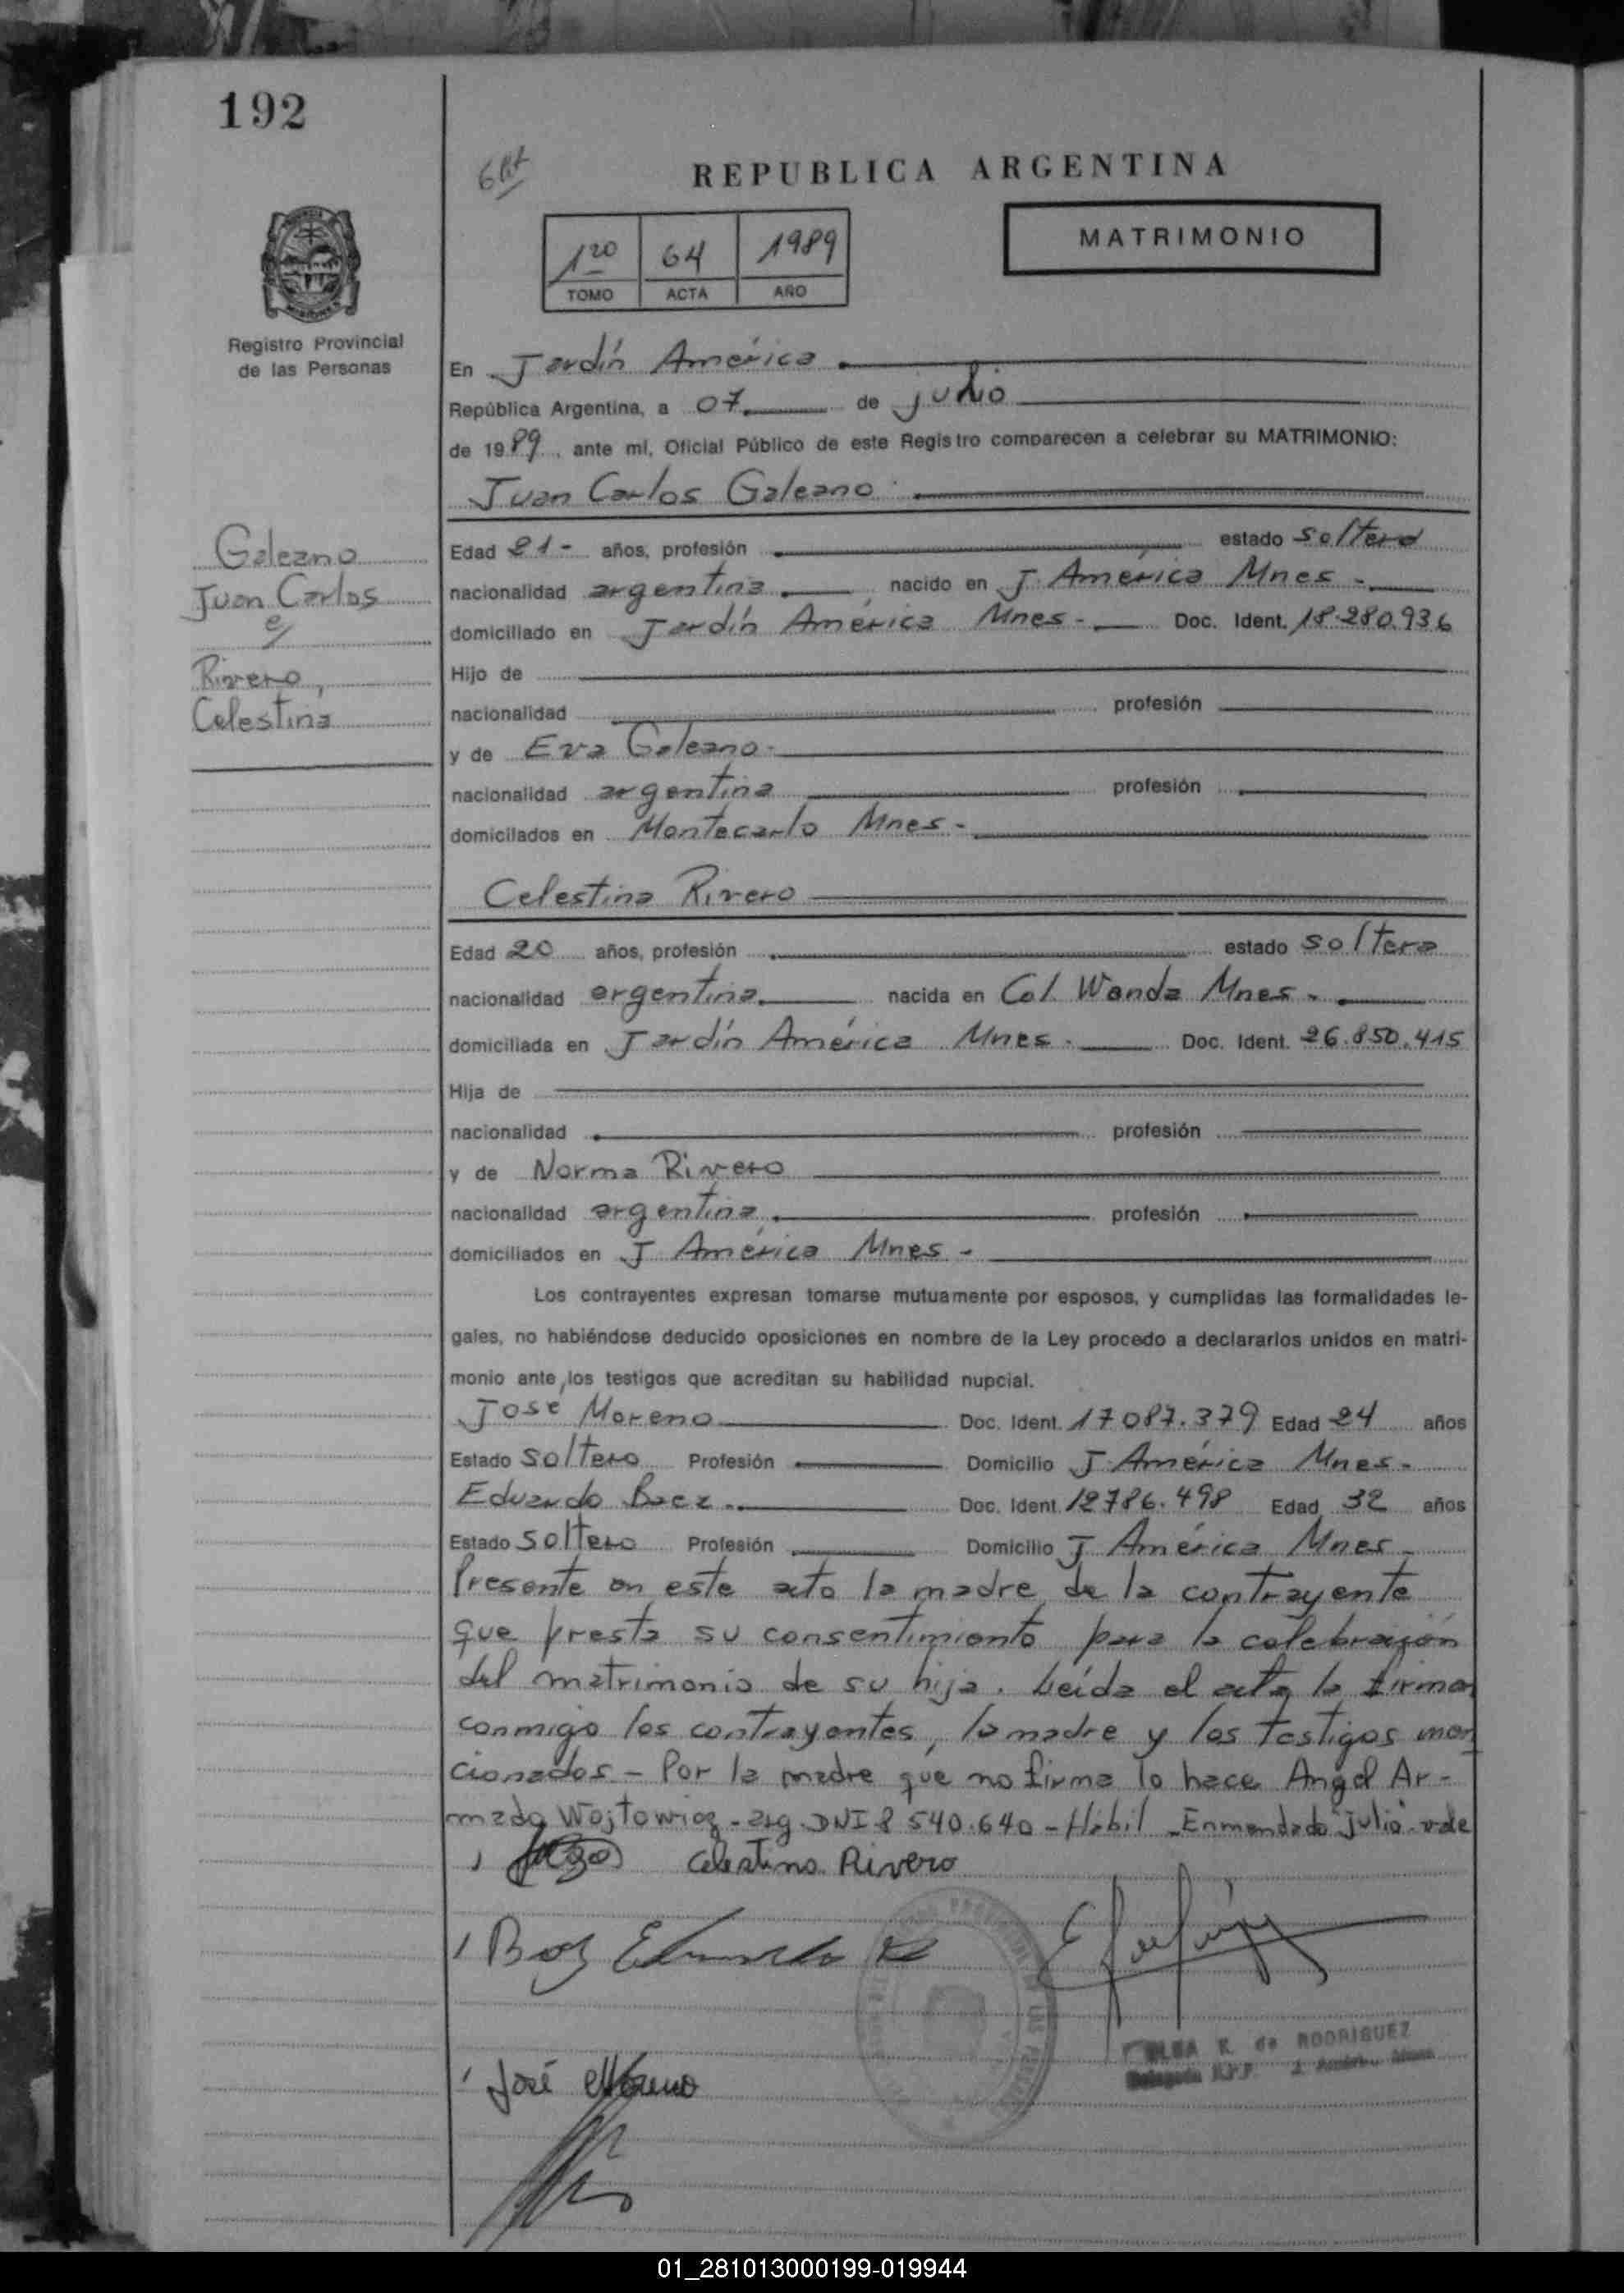 192
REPUBLICA ARGENTINA
1ro 64 1989
TOMO ACTA AÑO
MATRIMONIO
Registro Provincial
de las Personas
En Jardín América
República Argentina, a 07 de julio
de 1989, ante mi, Oficial Público de este Registro comparecen a celebrar su MATRIMONIO:
Juan Carlos Galeano
Galeano
Juan Carlos
y
Rivero,
Celestina
Edad 21- años, profesión estado soltero
nacionalidad argentina nacido en J. América Mnes-
domiciliado en Jardín América Mnes- Doc. Ident. 18.280.936
Hijo de
nacionalidad profesión
y de Eva Galeano-
nacionalidad argentina profesión
domicilados en Montecarlo Mnes-
Celestina Rivero
Edad 20 años, profesión estado soltera
nacionalidad argentina nacida en Col. Wanda Mnes-
domiciliada en Jardín América Mnes. Doc. Ident. 26.850.415
Hija de
nacionalidad profesión
y de Norma Rivero
nacionalidad argentina profesión
domiciliados en J América Mnes-
Los contrayentes expresan tomarse mutuamente por esposos, y cumplidas las formalidades le-
gales, no habiéndose deducido oposiciones en nombre de la Ley procedo a declararlos unidos en matri-
monio ante los testigos que acreditan su habilidad nupcial.
José Moreno Doc. Ident. 17087.379 Edad 24 años
Estado soltero Profesión Domicilio J. América Mnes-
Eduardo Baez- Doc. Ident. 12786.498 Edad 32 años
Estado soltero Profesión Domicilio J América Mnes-
Presente en este acto la madre de la contrayente
que presta su consentimiento para la celebración
del matrimonio de su hija. Leída el acta la firman
conmigo los contrayentes, la madre y los testigos men
cionados - Por la madre que no firma lo hace Angel Ar-
mado Wojtowicz - arg. DNI 8 540.640 - Hábil - Enmendado "julio" vale
Celestina Rivero
José Moreno
K. de RODRIGUEZ
01_281013000199-019944